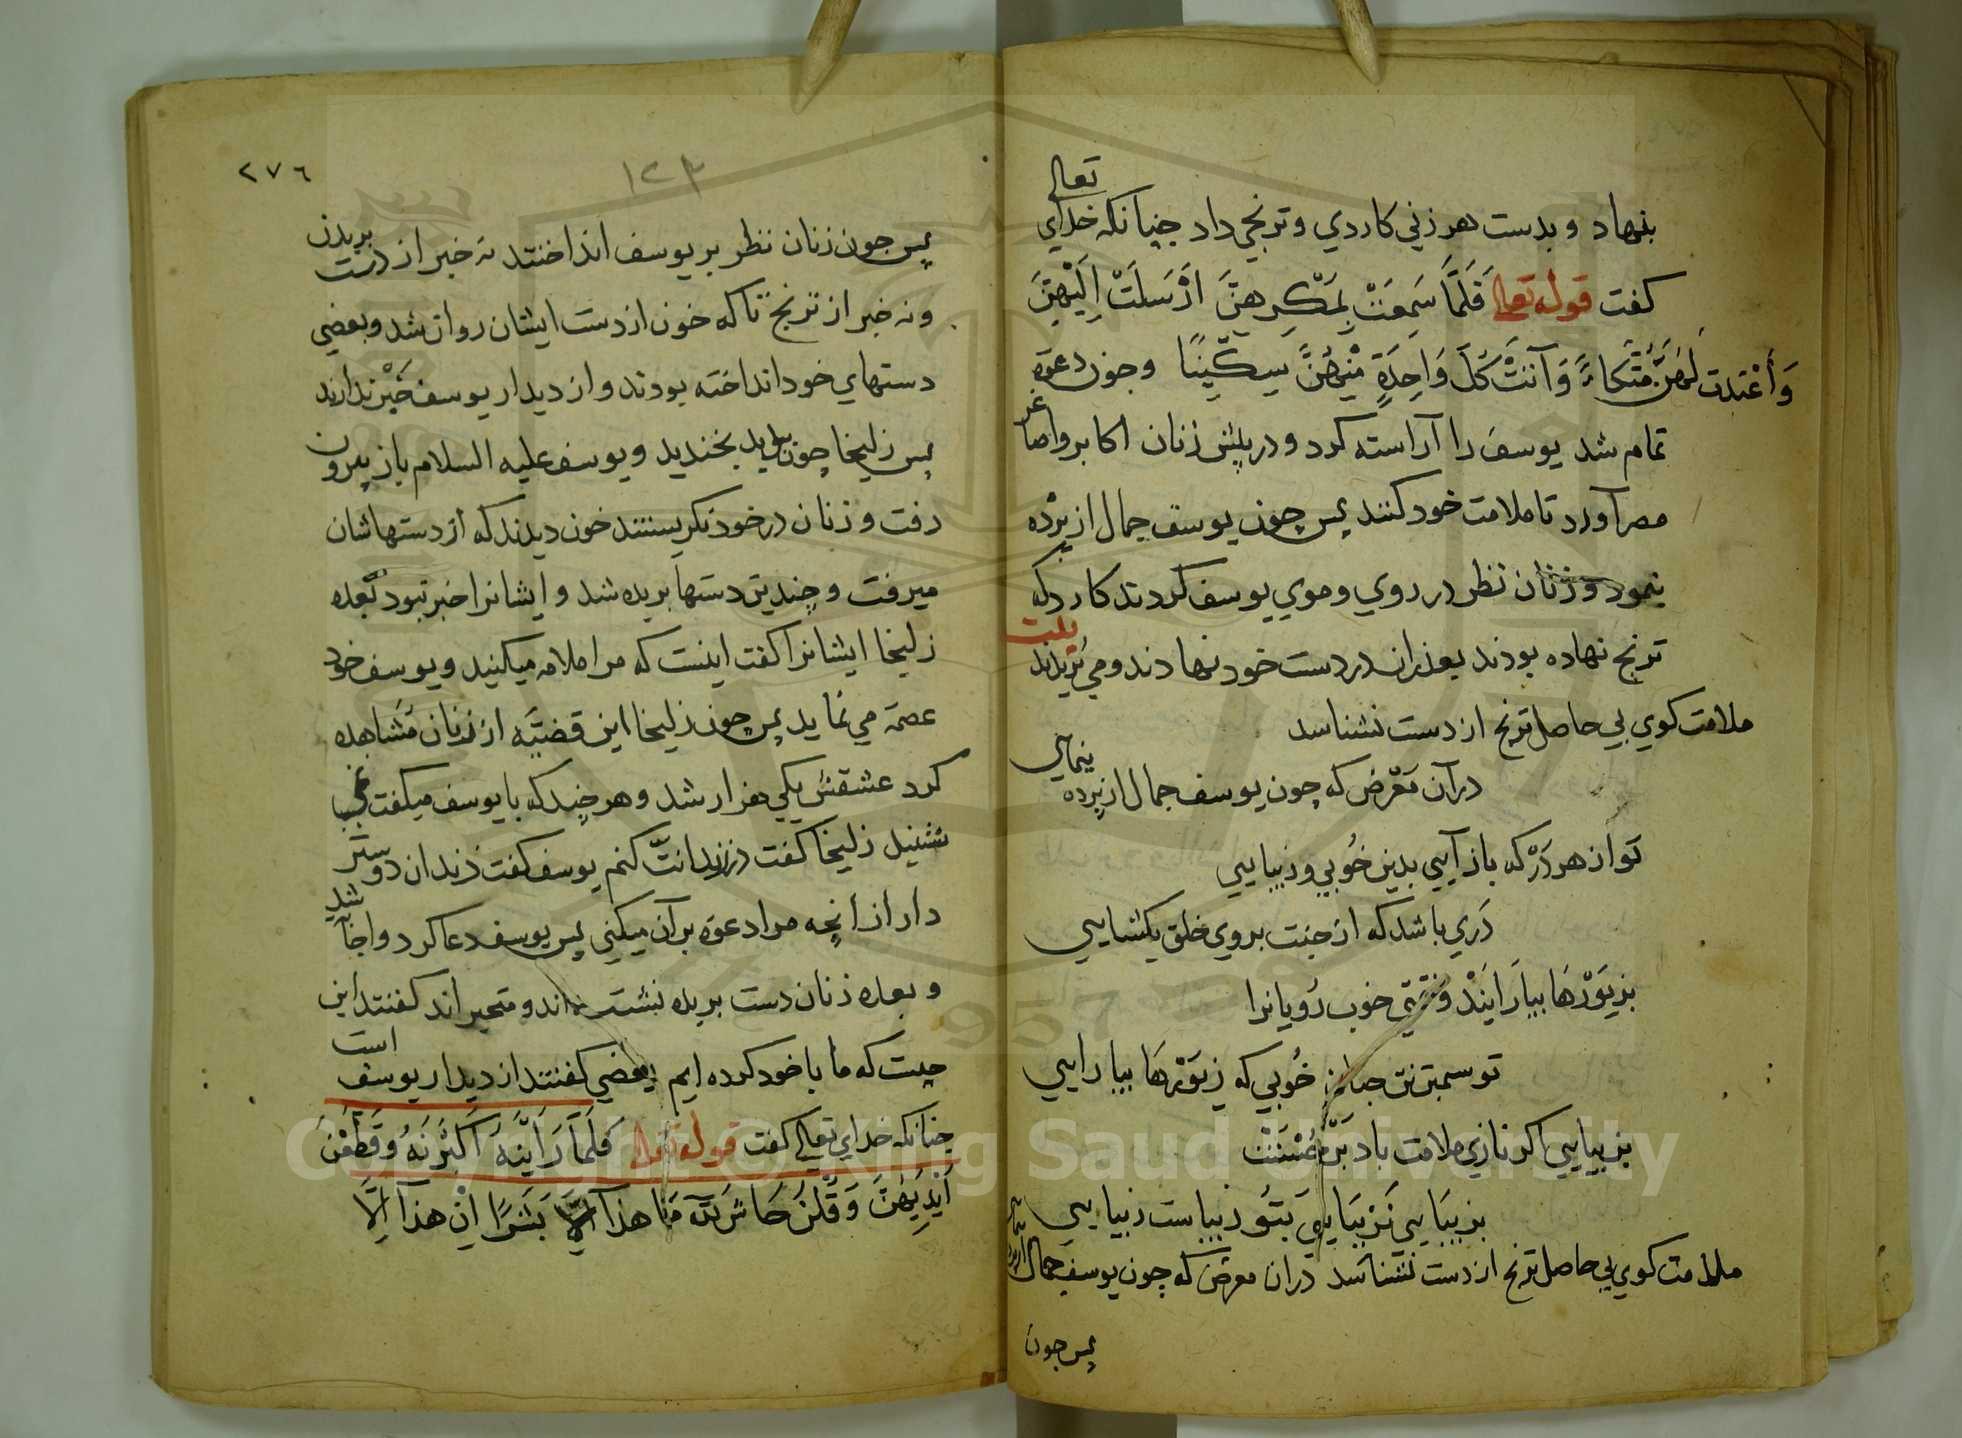 بنهاد و بدست هر زني كاردي و ترنجي داد چنانكه خداي تعالي
كفت قوله تعالي فَلَمَّا سَمِعَتْ بِمَكْرِهِنَّ أَرْسَلَتْ إِلَيْهِنَّ
وَأَعْتَدَت لَهُنَّ مُتَّكَاءً وَآتَتْ كُلَّ وَاحِدَةٍ مِنْهُنَّ سِكِّينًا وجون دعوة
تمام شد يوسف را آراسته كرد و در پيش زنان اكابر و اصاغر
مصر آورد تا ملامت خود كنند پس چون يوسف جمال از پرده
بنمود و زنان نظر در روي و موي يوسف كردند كارد كه بر
ترنج نهاده بودند بعذران در دست خود نهادند و مي بريدند
بيت
ملامت كوي بي حاصل ترنج از دست نشناسد
در آن مَعْرض كه چون يوسف جمال از پرده بنمايي
تو از هر دَرْ كه باز آيي بدين خُوبي و زيبايي
دَري باشد كه از جنت بروي خلق بكشايي
بزيوَرْهَا بيارَايَنْدْ وَقْتي خوب رُويانرا
تو سيمين تن چنان خُوبي كه زيوَرْهَا بيارايي
بزيبايي اكر نازي ملامت باد بَرْ
بزيبَايي نَزيبَايي بَتو زيباست زيبايي
ملامت كوي بي حاصل ترنج از دست نشناسد در ان معرض كه چون يوسف جمال از پرده بنمايي
پس جون
٢٧٦
١٢٣
پس جون زنان نظر بر يوسف انداختند نه خبر از دست بريدن
و نه خبر از ترنج تا كه خون از دست ايشان روان شد و بعضي
دستهاي خود انداخته بودند و از ديدار يوسف خَبَرْ ندارند
پس زليخا چون بديد بخنديد و يوسف عليه السلام باز بيرون
رفت و زنان در خود نكريستند خون ديدند كه از دستهاشان
ميرفت و چندين دستها بريده شد و ايشانرا خبر نبود بَعْده
زليخا ايشانرا كفت اينست كه مرا ملامه ميكنيد و يوسف خود
عصمة مي نمايد پس چون زليخا اين قضيّه از زنان مشاهده
كرد عشقش يكي هزار شد و هر چند كه با يوسف ميكفت نمي
شنيد زليخا كفت در زندانتْ كنم يوسف كفت زندان دوستر
دار از انچه مرا دعوة بر آن ميكني پس يوسف دعا كرد و اجابت شد
و بعده زنان دست بريده نشست ماند و متحير اند كفتند اين
چيست كه ما با خود كرده ايم بعضي كفتند از ديدار يوسف است
چنانكه خداي تعالي كفت قوله تعالي فَلَمَّا رَأَيْنَهُ أَكْبَرْنَهُ وَقَطَّعْنَ
أَيْدِيَهُنَّ وَقُلْنَ حَاشَ لِلَّهِ مَا هذَا بَشَرًا إِنْ هذَا إِلَّا